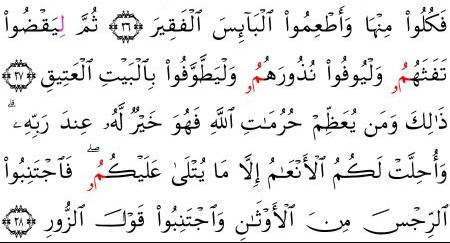 فَكُلُوا۟ مِنْهَا وَأَطْعِمُوا۟ ٱلْبَآئِسَ ٱلْفَقِيرَ ﴿٢٦﴾ ثُمَّ لِيَقْضُوا۟
تَفَثَهُمُۥ وَلْيُوفُوا۟ نُذُورَهُمُۥ وَلْيَطَّوَّفُوا۟ بِٱلْبَيْتِ ٱلْعَتِيقِ ﴿٢٧﴾
ذَٰلِكَ وَمَن يُعَظِّمْ حُرُمَٰتِ ٱللَّهِ فَهُوَ خَيْرٌ لَّهُۥ عِندَ رَبِّهِۦ ۗ
وَأُحِلَّتْ لَكُمُ ٱلْأَنْعَٰمُ إِلَّا مَا يُتْلَىٰ عَلَيْكُمُۥ ۖ فَٱجْتَنِبُوا۟
ٱلرِّجْسَ مِنَ ٱلْأَوْثَٰنِ وَٱجْتَنِبُوا۟ قَوْلَ ٱلزُّورِ ﴿٢٨﴾